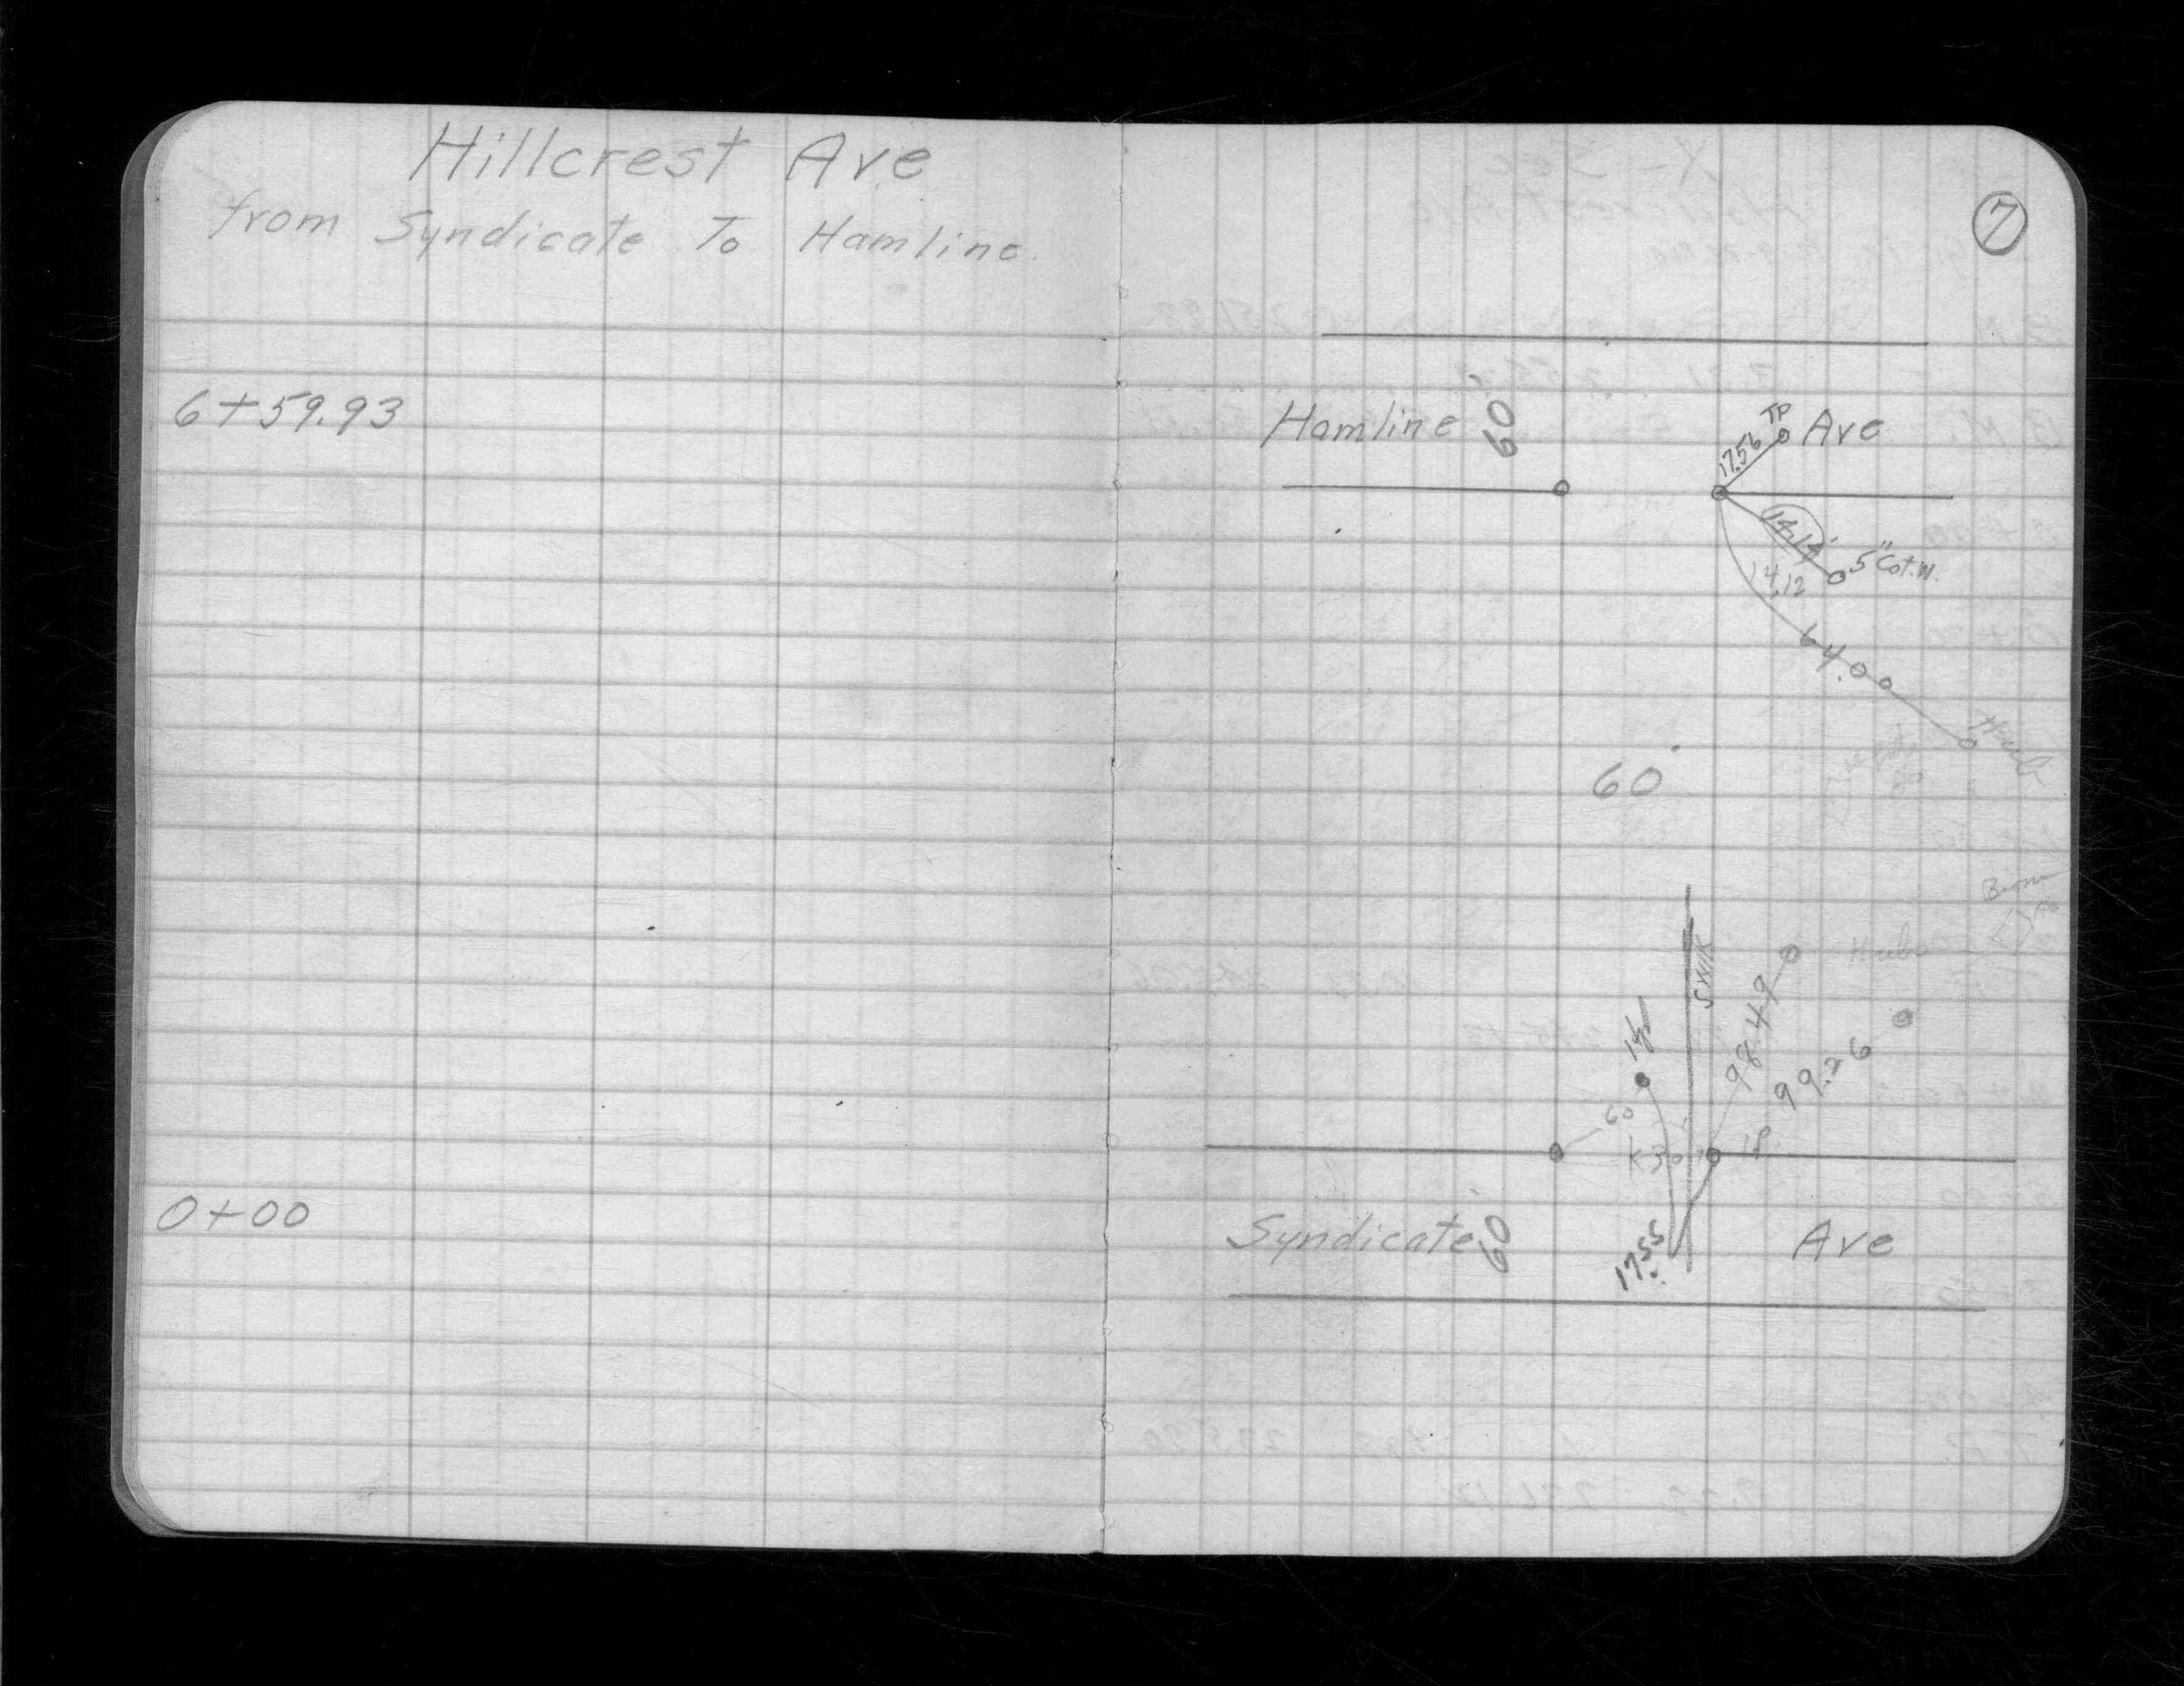 Hillcrest Ave
from Syndicate To Hamline.
6+59.93
0+00
7
Hamline 60' Ave
17.56 TP
14.14'
5" Cot.W.
14.12
64.00
60'
SWK
98.47
99.26
60
30'
I.P.
Syndicate 60' Ave
17.55